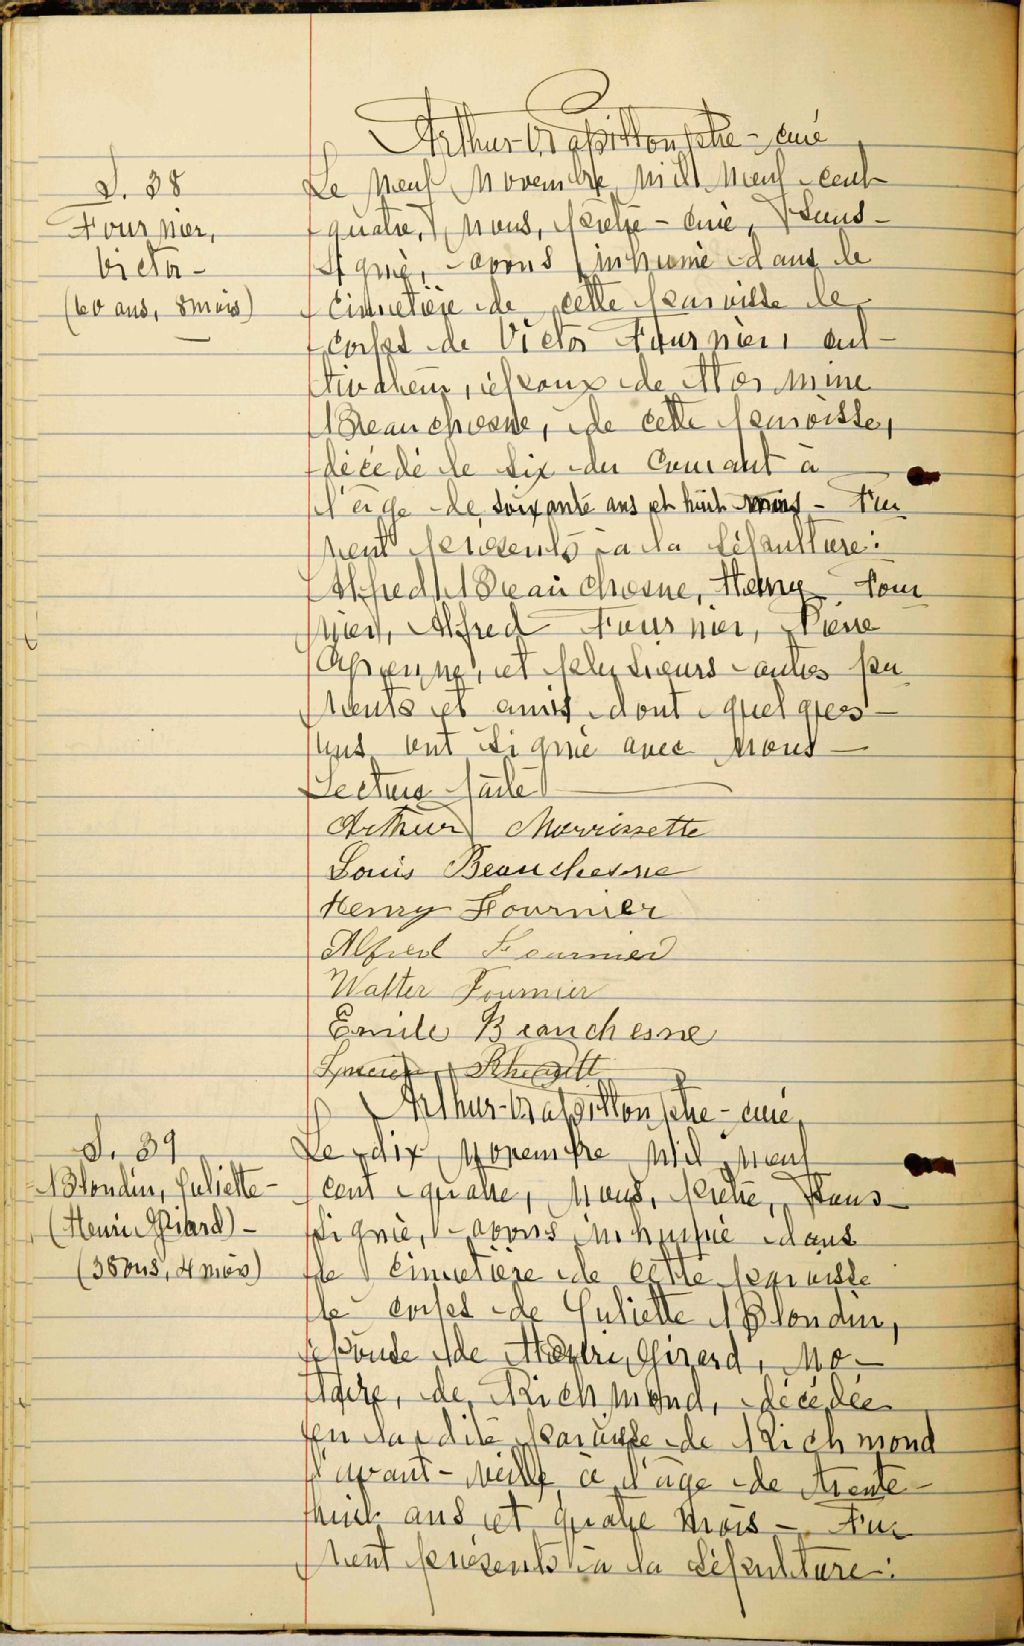 Arthur-O. Papillon, ptre-curé
S. 38
Fournier,
Victor -
(60 ans, 8 mois)
Le neuf novembre mil neuf-cent
quatre, nous, prêtre-curé, sous-
signé, avons inhumé dans le
cimetière de cette paroisse le
corps de Victor Fournier, cul-
tivateur, époux de Hermine
Beauchesne, de cette paroisse,
décédé le six du courant à
l'âge de soixante ans et huit mois - Fu
rent présents à la sépulture:
Alfred Beauchesne, Henry Four
nier, Alfred Fournier, Pierre
et plusieurs autres pa
rents et amis dont quelques-
uns ont signé avec nous -
Lecture faite
Arthur Morrissette
Louis Beauchesne
Henry Fournier
Alfred Fournier
Walter Fournier
Emile Beauchesne
Arthur-O. Papillon, ptre-curé,
S. 39
Blondin, Juliette -
(Henri Girard) -
(38 ans, 4 mois)
Le dix novembre mil neuf
cent quatre, nous, prêtre, sous-
signé, avons inhumé dans
le cimetière de cette paroisse
le corps de Juliette Blondin,
épouse de Henri Girard, no-
taire, de Richmond, décédée
en la dite paroisse de Richmond
l'avant-veille à l'âge de trente-
huit ans et quatre mois - Fu
rent présents à la sépulture: